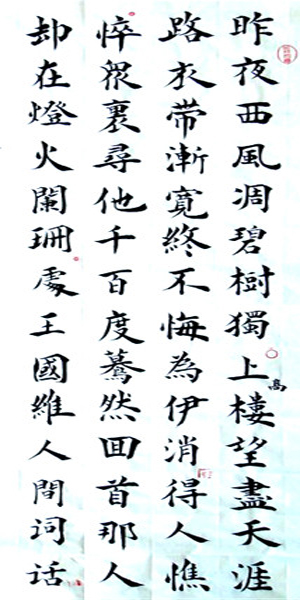 昨夜西風凋碧樹獨上高樓望盡天涯
路衣帶漸寬終不悔為伊消得人憔
悴衆裏尋他千百度驀然囬首那人
却在燈火闌珊處王國維人間词话